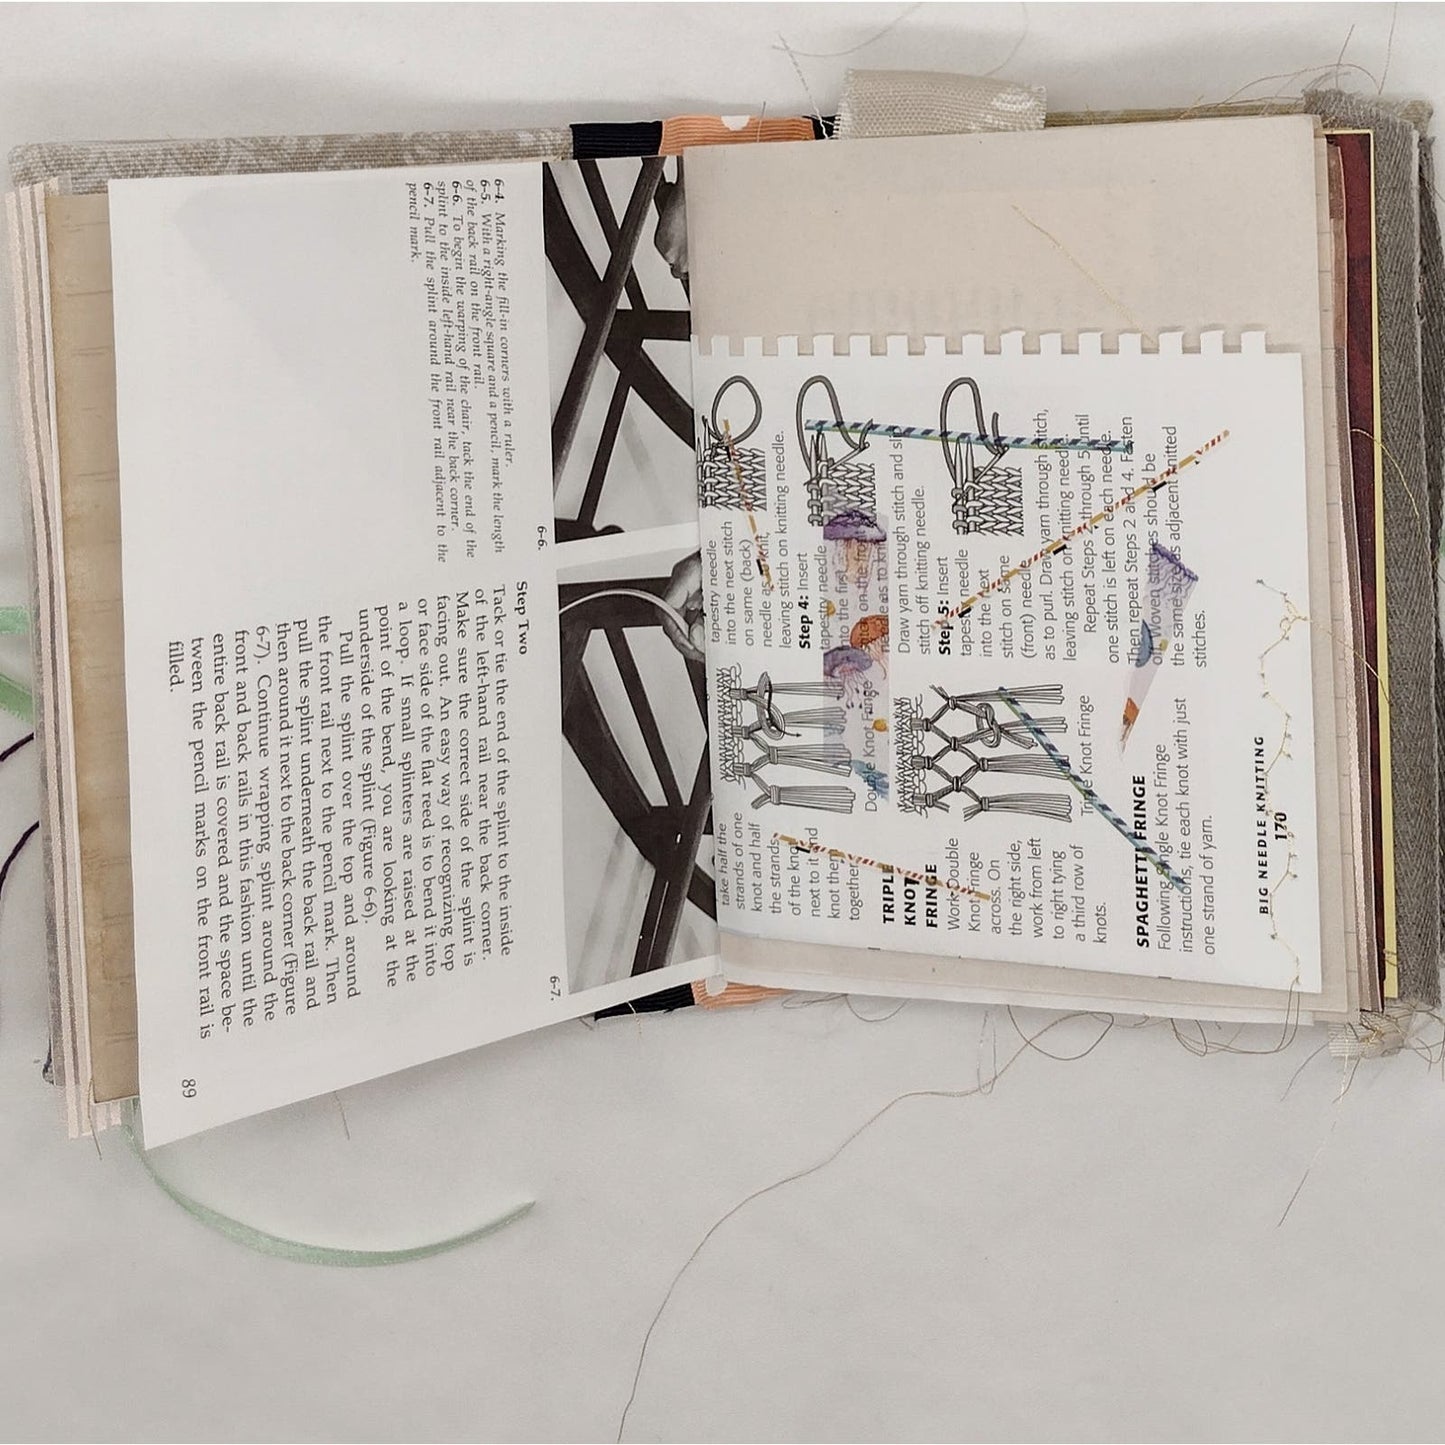 6-4. Marking the fill-in corners with a ruler.
6-5. With a right-angle square and a pencil, mark the length
of the back rail on the front rail.
6-6. To begin the warping of the chair, tack the end of the
splint to the inside left-hand rail near the back corner.
6-7. Pull the splint around the front rail adjacent to the
pencil mark.
6-6.
6-7.
Step Two
Tack or tie the end of the splint to the inside
of the left-hand rail near the back corner.
Make sure the correct side of the splint is
facing out. An easy way of recognizing top
or face side of the flat reed is to bend it into
a loop. If small splinters are raised at the
point of the bend, you are looking at the
underside of the splint (Figure 6-6).
Pull the splint over the top and around
the front rail next to the pencil mark. Then
pull the splint underneath the back rail and
then around it next to the back corner (Figure
6-7). Continue wrapping splint around the
front and back rails in this fashion until the
entire back rail is covered and the space be-
tween the pencil marks on the front rail is
filled.
89
tapestry needle
into the next stitch
on same (back)
needle as to knit,
leaving stitch on knitting needle.
Step 4: Insert
tapestry needle
into the first
stitch on the front
needle as to knit
Draw yarn through stitch and
stitch off knitting needle.
Step 5: Insert
tapestry needle
into the next
stitch on same
(front) needle
as to purl. Draw yarn through stitch,
leaving stitch on knitting needle.
Repeat Steps through 5 until
one stitch is left on each needle.
Then repeat Steps 2 and 4. Fasten
off. Woven stitches should be
the same size as adjacent knitted
stitches.
take half the
strands of one
knot and half
the strands
of the knot
next to it and
knot them
together.
Double Knot Fringe
TRIPLE
KNOT
FRINGE
Work Double
Knot Fringe
across. On
the right side,
work from left
to right tying
a third row of
knots.
Triple Knot Fringe
SPAGHETTI FRINGE
Following Single Knot Fringe
instructions, tie each knot with just
one strand of yarn.
BIG NEEDLE KNITTING
170